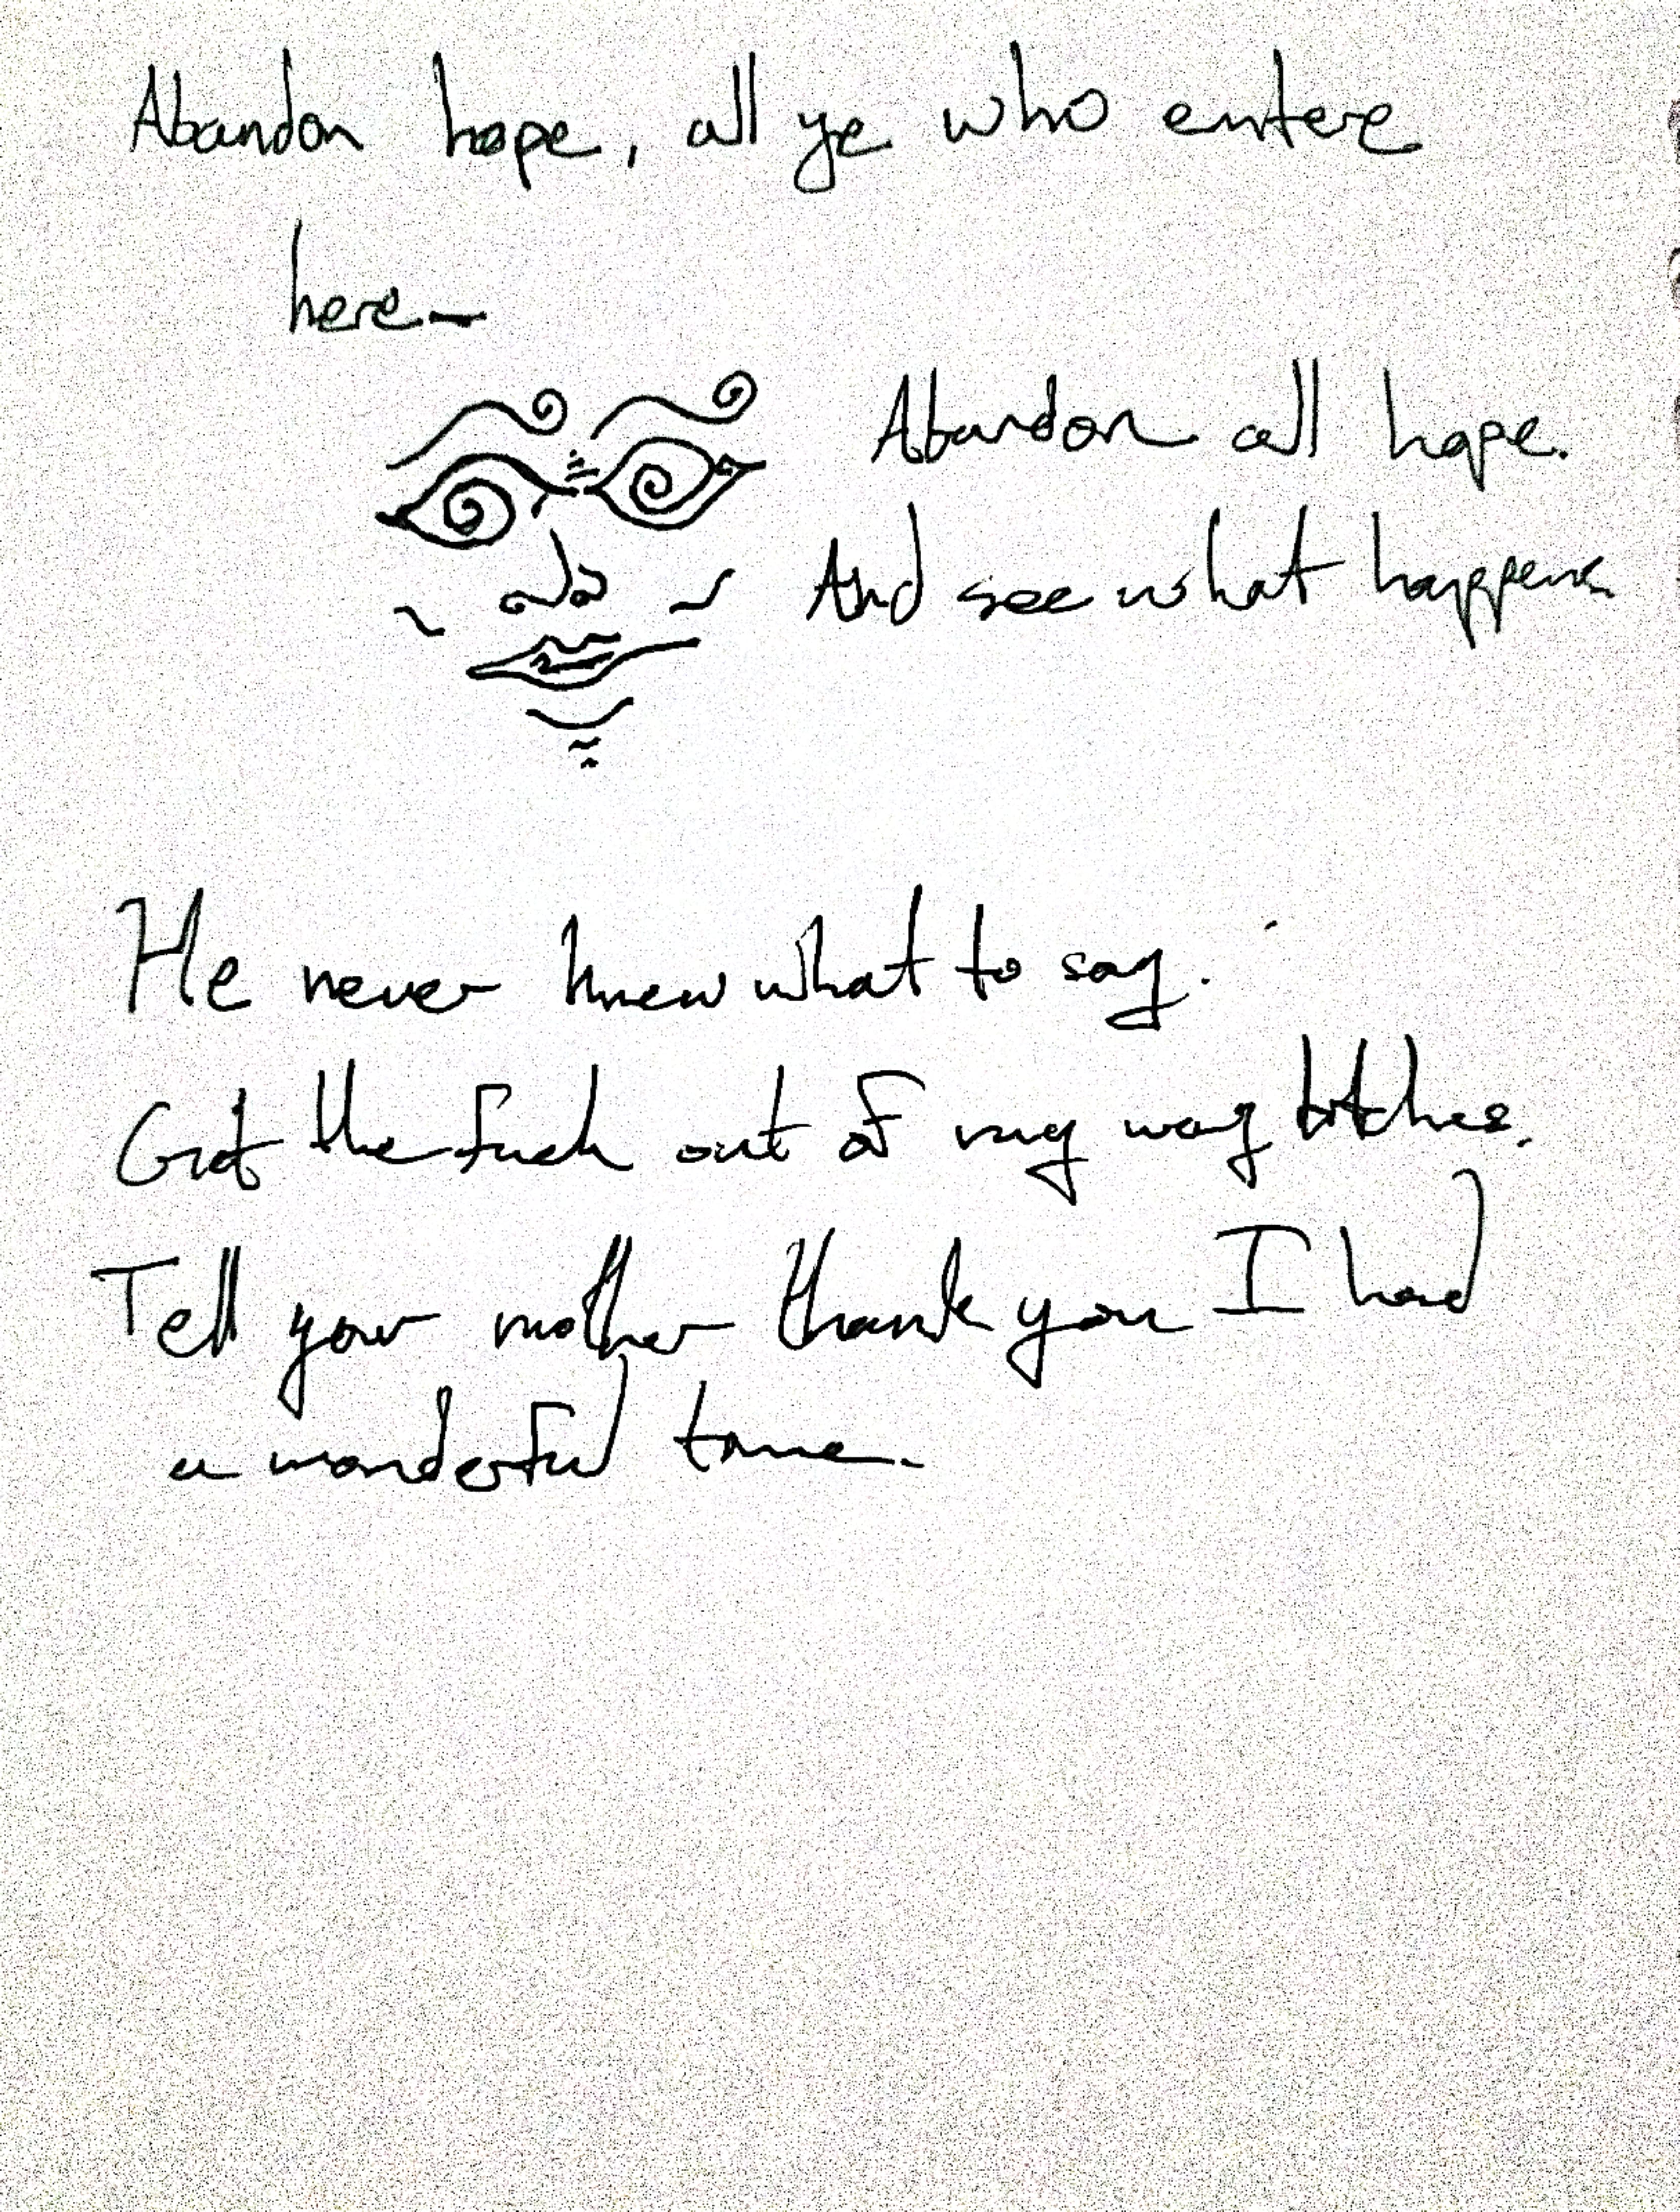 Abandon hope, all ye who entere
here—
Abandon all hope.
And see what happens.
He never knew what to say.
Get the fuck out of my way bitches.
Tell your mother thank you I had
a wonderful time.